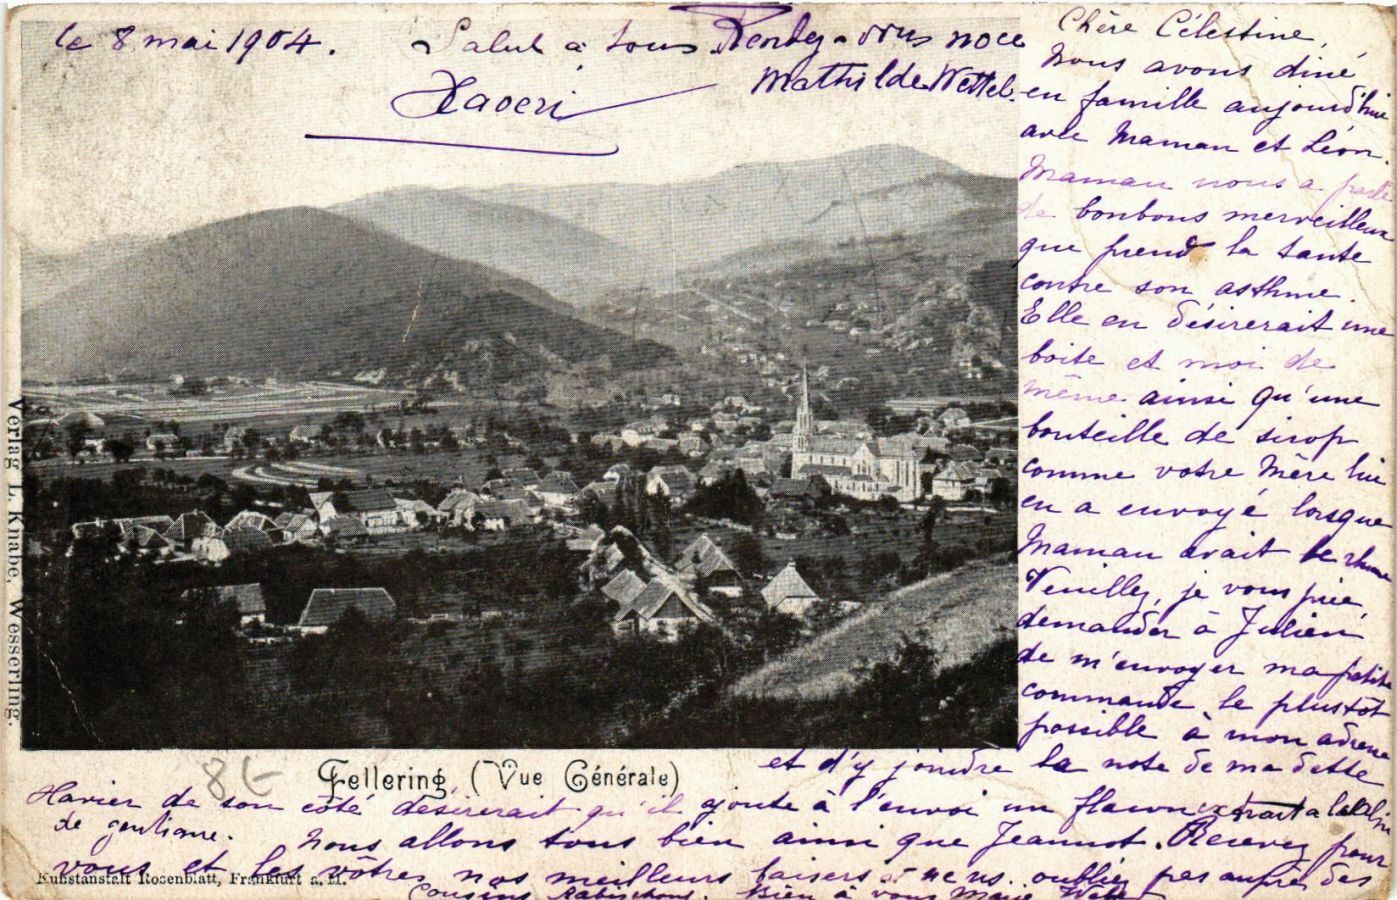 le 8 mai 1904. Salut à tous
Xavier
Rendez-vous noce
Mathilde Wettel.
Chère Célestine,
Nous avons diné
en famille aujourd'hui
avec Maman et Léon.
Maman nous a parlé
de bonbons merveilleux
que prend la tante
contre son asthme.
Elle en désirerait une
boite et moi de
même ainsi qu'une
bouteille de sirop
comme votre Mère lui
en a envoyé lorsque
Maman avait le rhume
Veuillez, je vous prie,
demander à Julien
de m'envoyer ma petite
commande le plustôt
possible à mon adresse
et d'y joindre la note de ma dette
Xavier de son côté désirerait qu'il ajoute à l'envoi un flacon extrait
de gentiane. Nous allons tous bien ainsi que Jeannot. Recevez pour
vous et les vôtres nos meilleurs baisers et ne ns. oubliez pas auprès des
Cousins. Bien à vous Marie
Fellering (Vue Générale)
Verlag L. Knabe, Wesserling.
Kunstanstalt Rosenblatt, Frankfurt a. M.
8E